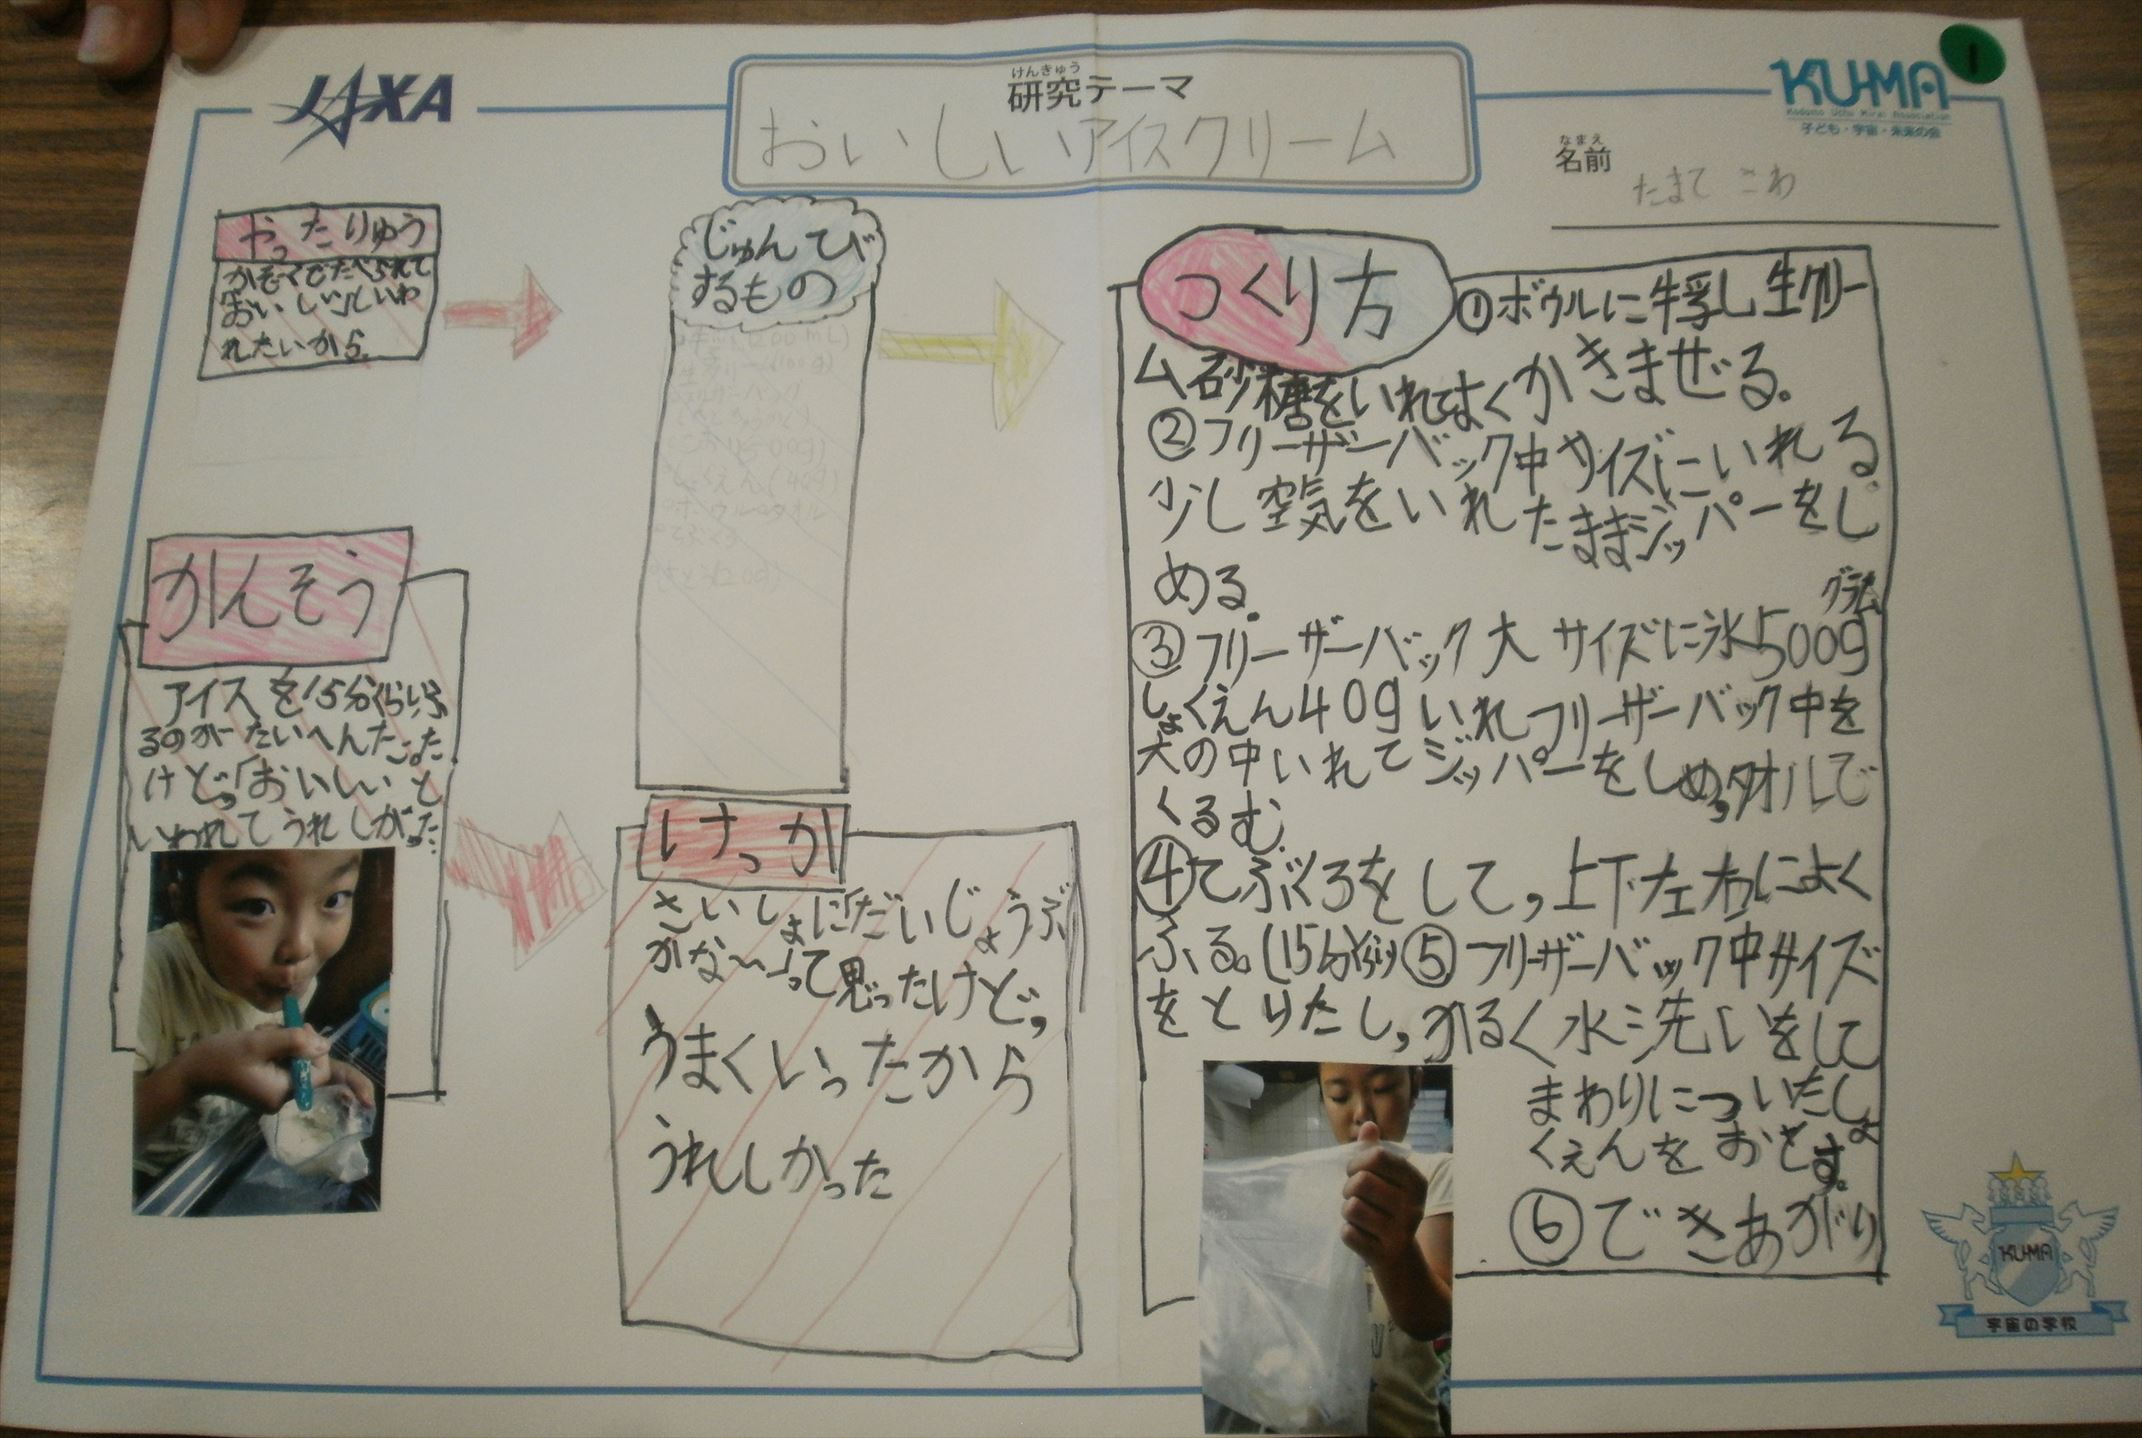 JAXA
けんきゅう
研究テーマ
おいしいアイスクリーム
KU-MA
Kodomo Uchu Mirai Association
子ども・宇宙・未来の会
1
なまえ
名前
たまて こわ
やったりゆう
かぞくでたべられて
「おいしい」といわ
れたいから。
じゅんび
するもの
(200mL)
(100g)
フリーザーバッグ
こおり(500g)
しょくえん(40g)
ボウル タオル
てぶくろ
さとう(20g)
つくり方
①ボウルに牛乳し生クリー
ム砂糖をいれてよくかきまぜる。
②フリーザーバック中サイズにいれる
少し空気をいれたままジッパーをし
める。
グラム
③フリーザーバック大サイズに氷500g
しょくえん40gいれフリーザーバック中を
大の中いれてジッパーをしめ,タオルで
くるむ。
④てぶくろをして,上下左右によく
ふる。(15分くらい)⑤フリーザーバック中サイズ
をとりだし,かるく水で洗いをして
まわりについたしょ
くえんをおとす。
⑥できあがり
かんそう
アイスを15分くらいふ
るのがたいへんだった
けど,「おいしいと
いわれてうれしかった
けっか
さいしょに「だいじょうぶ
かな〜」って思ったけど,
うまくいったから
うれしかった
KU-MA
宇宙の学校